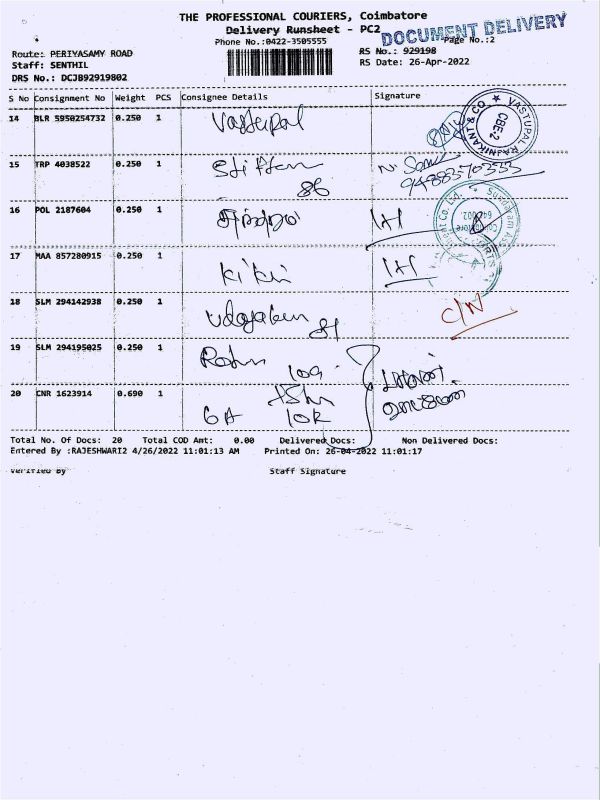 THE PROFESSIONAL COURIERS, Coimbatore
Delivery Runsheet - PC2
DOCUMENT DELIVERY
Phone No.:0422-3505555
Page No.:2
Route: PERIYASAMY ROAD
RS No.: 929198
Staff: SENTHIL
RS Date: 26-Apr-2022
DRS No.: DCJB92919802
S No Consignment No Weight PCS Consignee Details Signature
14 BLR 5950254732 0.250 1 Vastupal
VASTUPAL RAJNIKANT & CO ★ CBE-2
15 TRP 4038522 0.250 1
9488370333
86
16 POL 2187604 0.250 1
Sundaram
Coimbatore
17 MAA 857280915 0.250 1 Kikui
18 SLM 294142938 0.250 1 C/N
81
19 SLM 294195025 0.250 1
109
20 CNR 1623914 0.690 1
6A 10R
Total No. Of Docs: 20 Total COD Amt: 0.00 Delivered Docs: Non Delivered Docs:
Entered By :RAJESHWARI2 4/26/2022 11:01:13 AM Printed On: 26-04-2022 11:01:17
Verified By Staff Signature